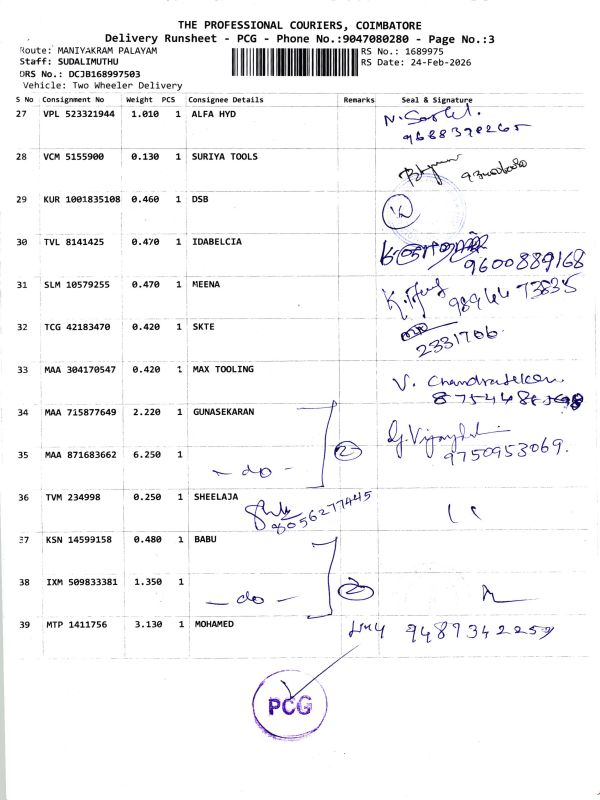 THE PROFESSIONAL COURIERS, COIMBATORE
Delivery Runsheet - PCG - Phone No.:9047080280 - Page No.:3
Route: MANIYAKRAM PALAYAM
RS No.: 1689975
Staff: SUDALIMUTHU
RS Date: 24-Feb-2026
DRS No.: DCJB168997503
Vehicle: Two Wheeler Delivery
S No Consignment No Weight PCS Consignee Details Remarks Seal & Signature
27 VPL 523321944 1.010 1 ALFA HYD
28 VCM 5155900 0.130 1 SURIYA TOOLS
29 KUR 1001835108 0.460 1 DSB
30 TVL 8141425 0.470 1 IDABELCIA
9600889168
31 SLM 10579255 0.470 1 MEENA
32 TCG 42183470 0.420 1 SKTE
2331706
33 MAA 304170547 0.420 1 MAX TOOLING
V. Chandrasekan
34 MAA 715877649 2.220 1 GUNASEKARAN
35 MAA 871683662 6.250 1 - do - 2
9750953069.
36 TVM 234998 0.250 1 SHEELAJA
9056277445
37 KSN 14599158 0.480 1 BABU
38 IXM 509833381 1.350 1 - do - 2
39 MTP 1411756 3.130 1 MOHAMED
PCG